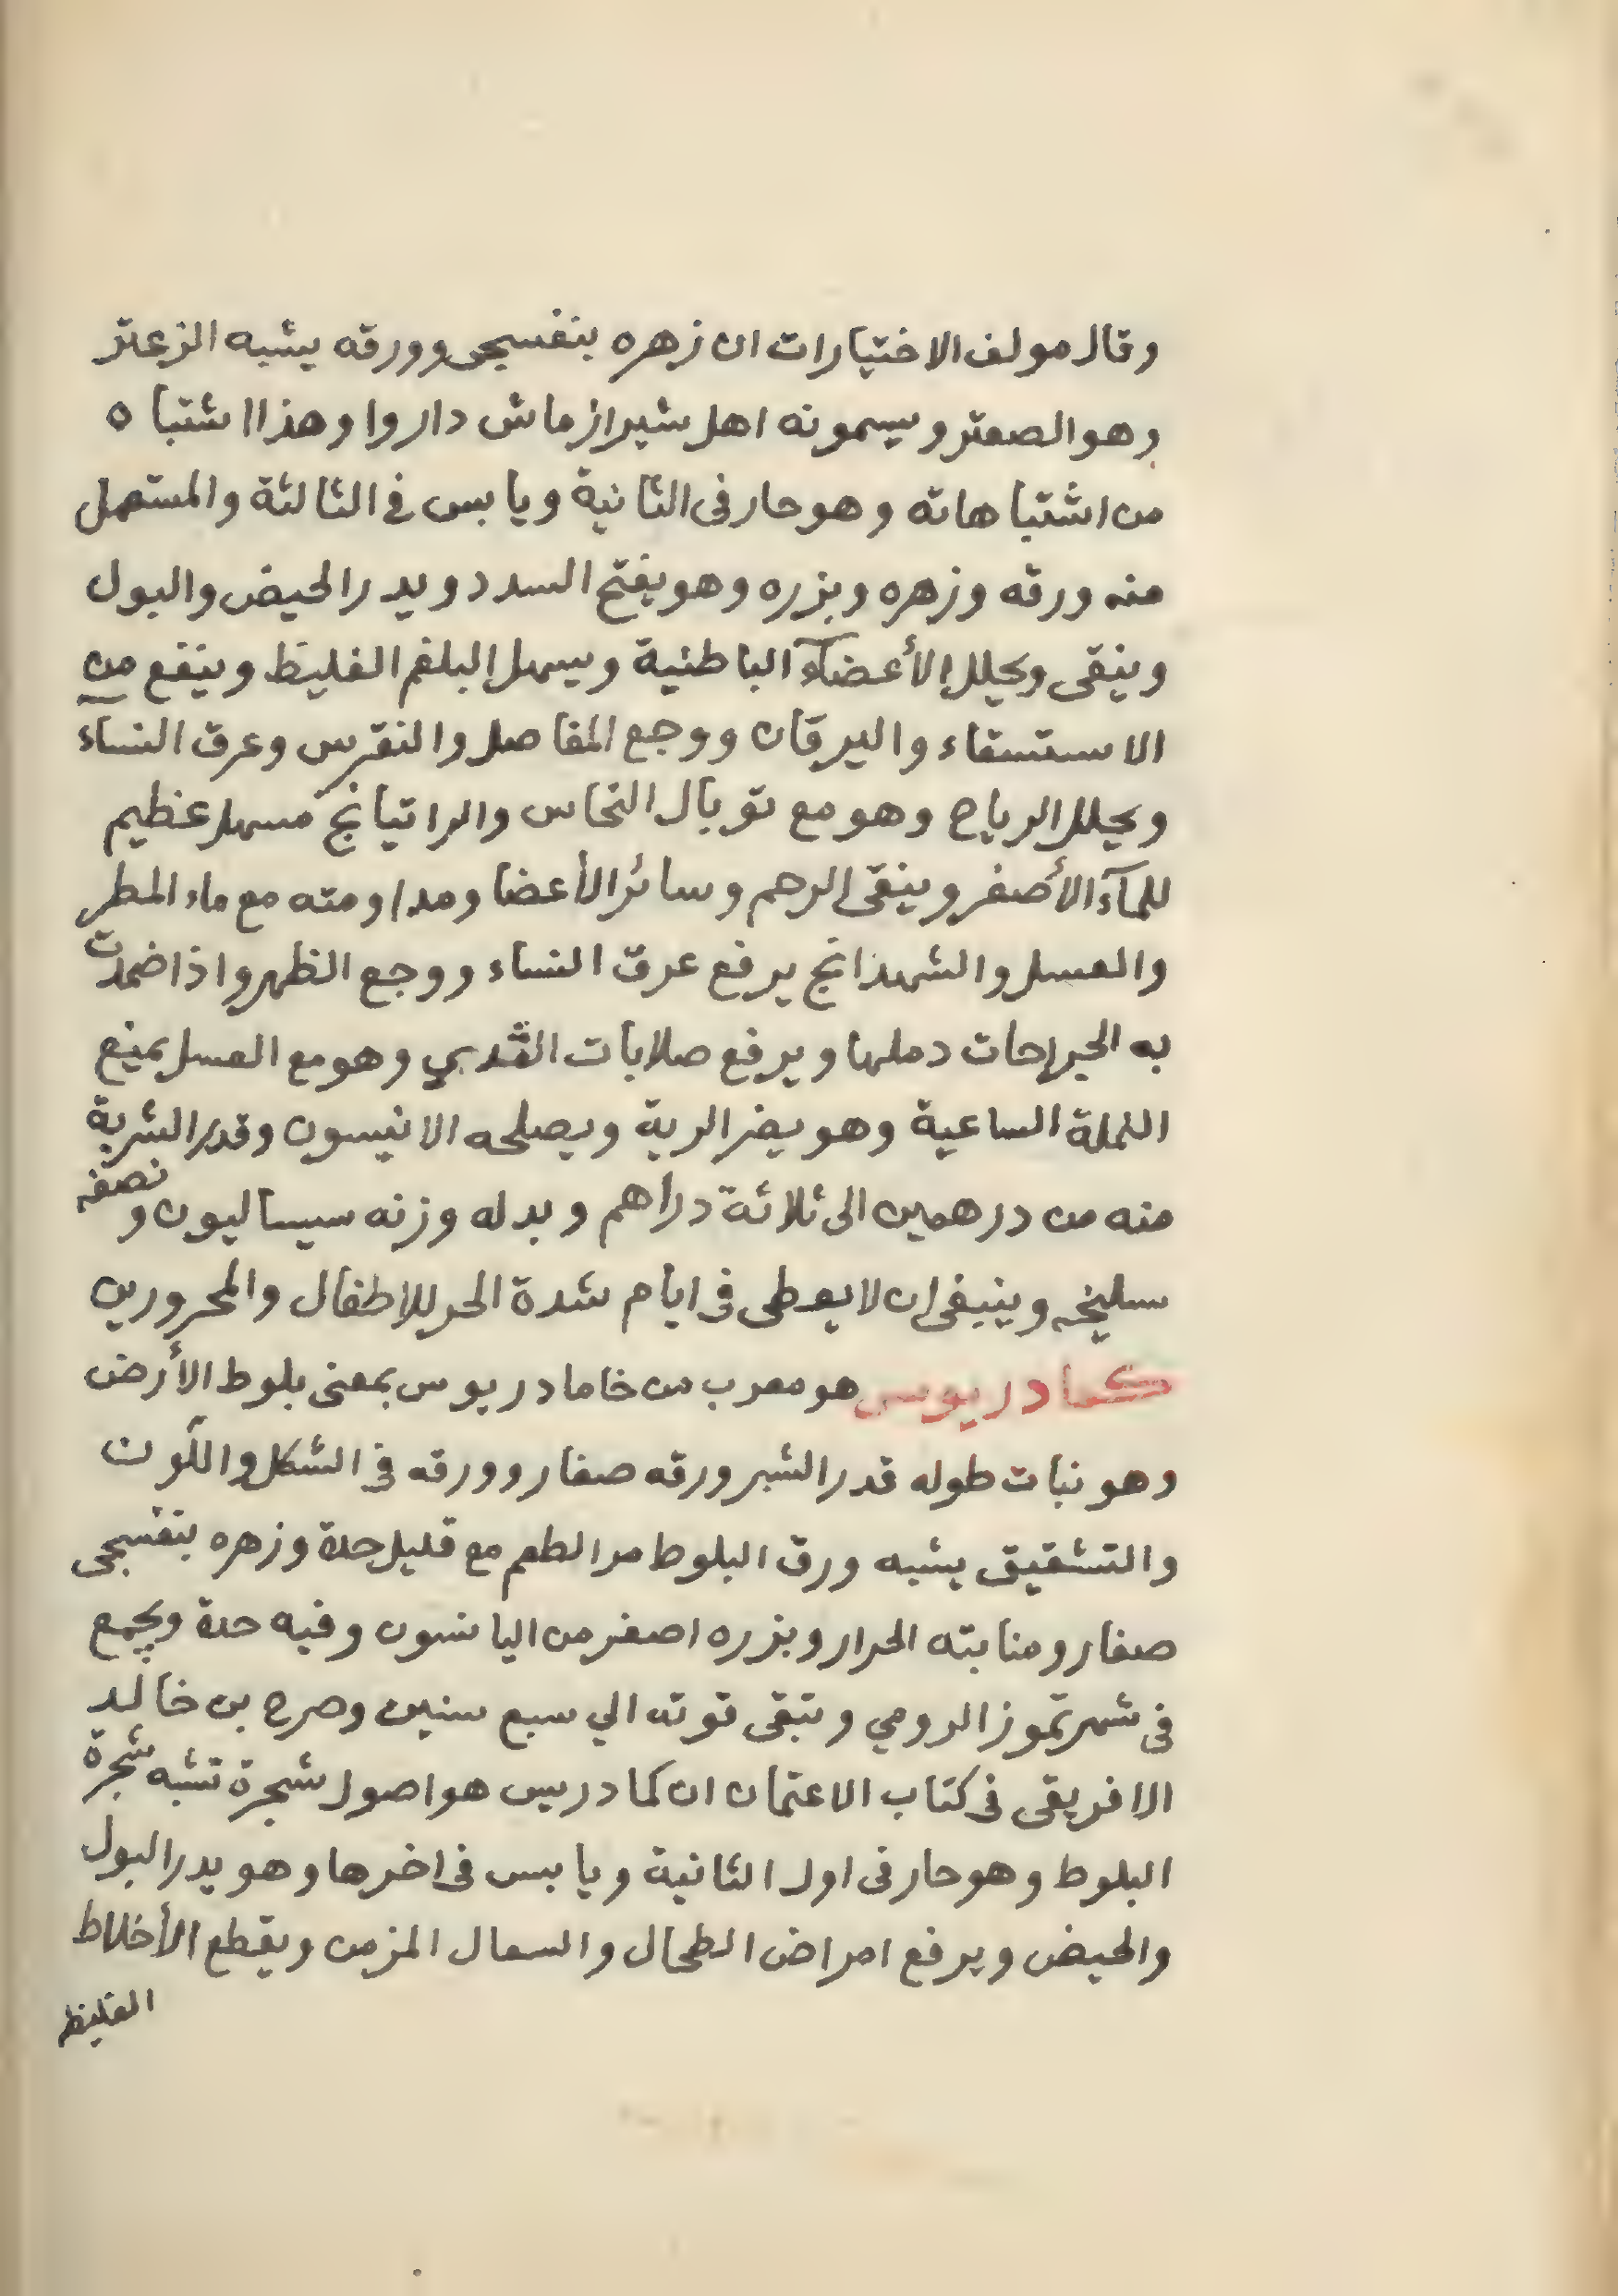 وقال مولف الاختيارات ان زهره بنفسجى وورقه يشبه الزعتر
وهو الصعتر ويسمونه اهل شيراز ماش داروا وهذا اشتباه
من اشتباهاته وهو حار فى الثانية ويابس فى الثالثة والمستعمل
منه ورقه وزهره وبزره وهو يفتح السدد ويدر الحيض والبول
وينقى ويحلل الأعضآء الباطنية ويسهل البلغم الغليظ وينفع من
الاستسقاء واليرقان ووجع المفاصل والنقرس وعرق النساء
ويحلل الرياح وهو مع توبال النحاس والراتيانج مسهل عظيم
للمآء الأصفر وينقى الرحم وسائر الأعضا ومداومته مع ماء المطر
والعسل والشهدانج يرفع عرق النساء ووجع الظهر واذا ضمدت
به الجراحات دملها ويرفع صلابات الثدي وهو مع العسل يمنع
النملة الساعية وهو يضر الرية ويصلحه الانيسون وقدر الشربة
منه من درهمين الى ثلاثة دراهم وبدله وزنه سيساليون ونصفه
سليخه وينبغى ان لا يعطى فى ايام شدة الحر للاطفال والمحرورين
كمادريوس هو معرب من خامادريوس بمعنى بلوط الأرض
وهو نبات طوله قدر الشبر ورقه صغار وورقه فى الشكل واللون
والتشقيق يشبه ورق البلوط مر الطعم مع قليل حدة وزهره بنفسجى
صغار ومنابته الحرار وبزره اصغر من اليانسون وفيه حدة ويجمع
فى شهر تموز الرومي وتبقى قوته الي سبع سنين وصرح بن خالد
الافريقى فى كتاب الاعتمان ان كمادريس هو اصول شجرة تشبه شجرة
البلوط وهو حار فى اول الثانية ويابس فى اخرها وهو يدر البول
والحيض ويرفع امراض الطحال والسعال المزمن ويقطع الأخلاط
الغليظ